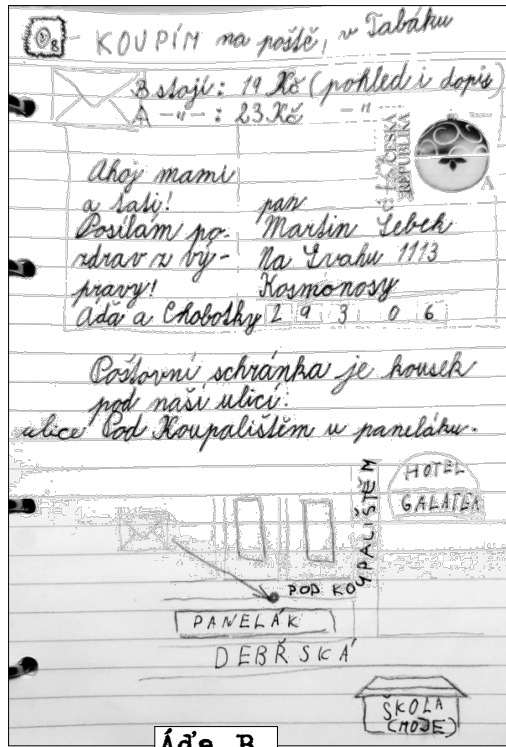 B
KOUPÍM na poště, v Tabáku
B stojí: 19 Kč (pohled i dopis)
A -"- : 23 Kč -"-
ČESKÁ
REPUBLIKA
A
Ahoj mami
a tati!
Posílám po-
zdrav z vý-
pravy!
Áďa a Chobotky
pan
Martin Lebek
Na Svahu 1113
Kosmonosy
2 9 3 0 6
Poštovní schránka je kousek
pod naší ulicí.
ulice Pod Koupalištěm u paneláku.
HOTEL
GALATEA
POD KOUPALIŠTĚM
PANELÁK
DEBŘSKÁ
ŠKOLA
(MOJE)
Áďa B.